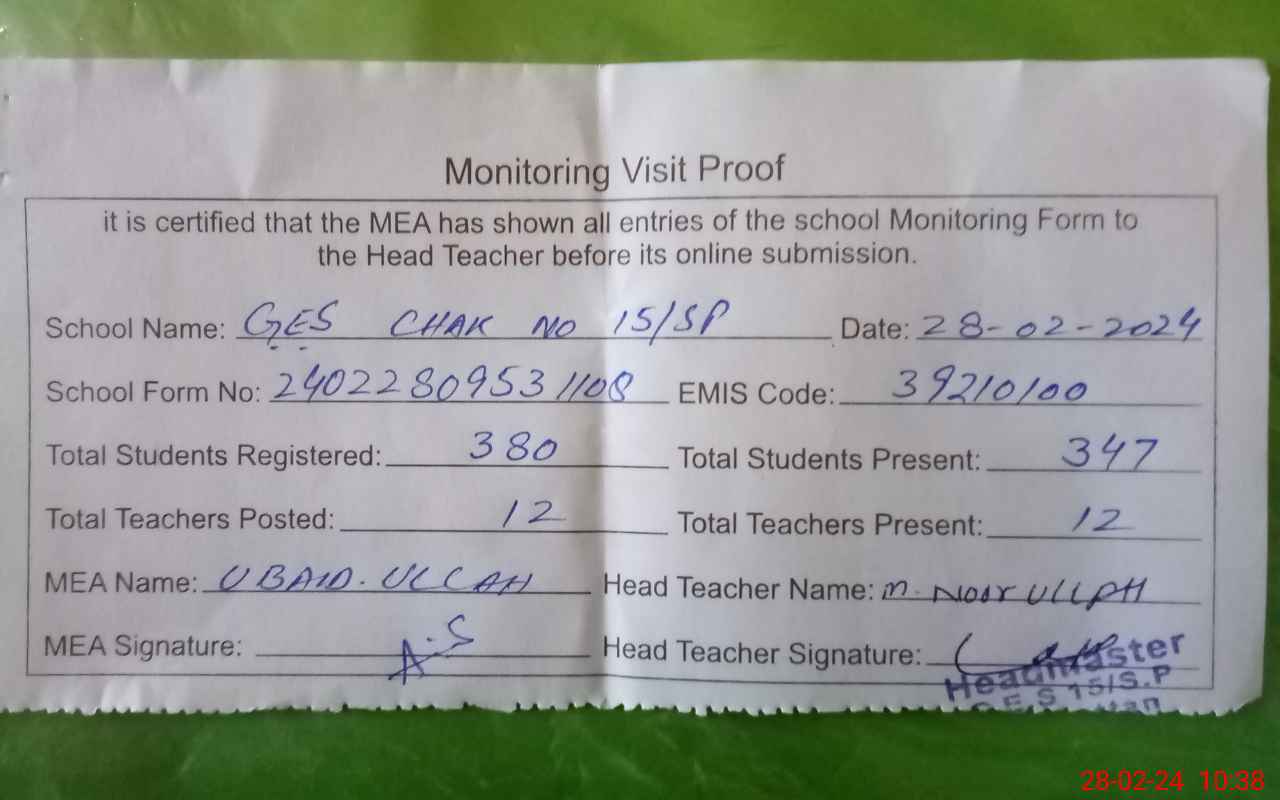 Monitoring Visit Proof
it is certified that the MEA has shown all entries of the school Monitoring Form to
the Head Teacher before its online submission.
School Name: GES CHAK NO 15/SP Date: 28-02-2024
School Form No: 24022809531108 EMIS Code: 39210100
Total Students Registered: 380 Total Students Present: 347
Total Teachers Posted: 12 Total Teachers Present: 12
MEA Name: UBAID. ULLAH Head Teacher Name: M. Noor ULLAH
MEA Signature: A.S Head Teacher Signature:
Headmaster
G.E.S 15/S.P
28-02-24 10:38